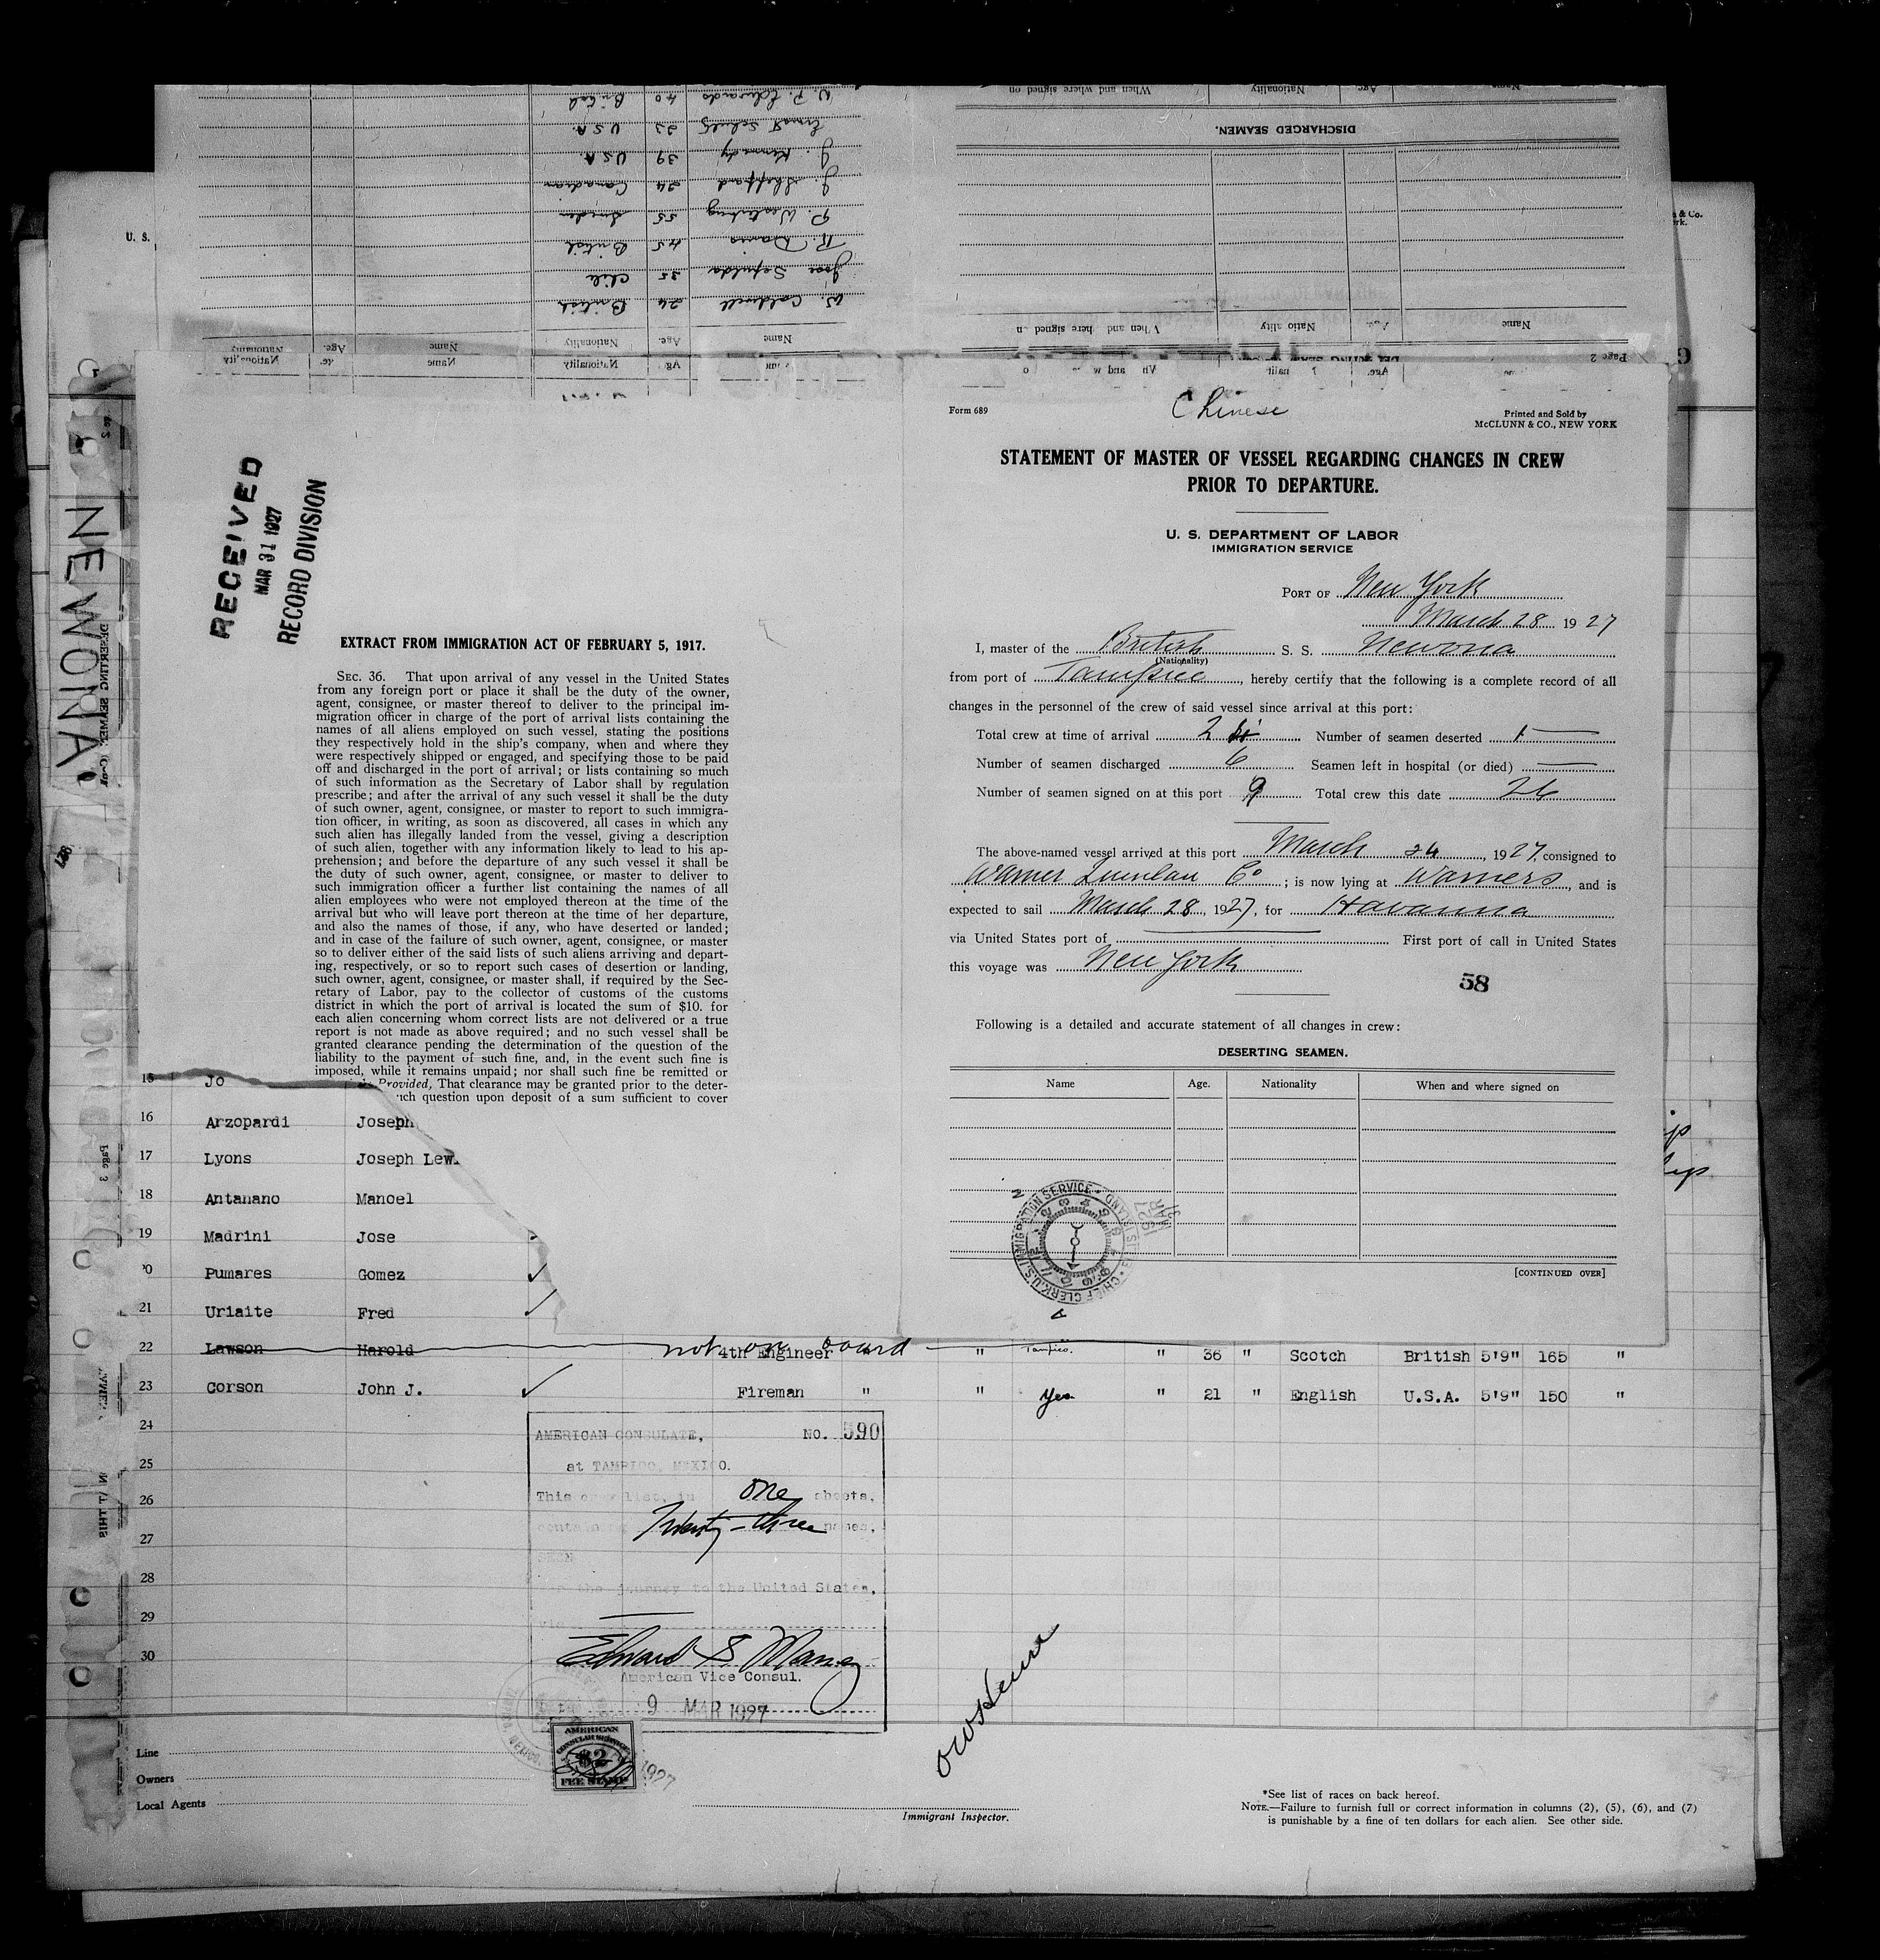 W. P. Edwards 40 British
Ernst Schulz 23 U.S.A.
J. Kennedy 39 U.S.A.
J. Sheppard 24 Canadian
P. Westerburg 55 Sweden
R. Davis 45 British
Jose Sepulda 35 Chile
W. Caldwell 24 British
Name Age. Nationality Name Age. Nationality
Name Age. Nationality When and where signed on
DISCHARGED SEAMEN.
Name Age. Nationality When and here signed on
Page 2
U. S.
& Co.
NEWONA
DESERTING SEAMEN.
Page 3
RECEIVED
MAR 31 1927
RECORD DIVISION
EXTRACT FROM IMMIGRATION ACT OF FEBRUARY 5, 1917.
SEC. 36. That upon arrival of any vessel in the United States
from any foreign port or place it shall be the duty of the owner,
agent, consignee, or master thereof to deliver to the principal im-
migration officer in charge of the port of arrival lists containing the
names of all aliens employed on such vessel, stating the positions
they respectively hold in the ship's company, when and where they
were respectively shipped or engaged, and specifying those to be paid
off and discharged in the port of arrival; or lists containing so much
of such information as the Secretary of Labor shall by regulation
prescribe; and after the arrival of any such vessel it shall be the duty
of such owner, agent, consignee, or master to report to such immigra-
tion officer, in writing, as soon as discovered, all cases in which any
such alien has illegally landed from the vessel, giving a description
of such alien, together with any information likely to lead to his ap-
prehension; and before the departure of any such vessel it shall be
the duty of such owner, agent, consignee, or master to deliver to
such immigration officer a further list containing the names of all
alien employees who were not employed thereon at the time of the
arrival but who will leave port thereon at the time of her departure,
and also the names of those, if any, who have deserted or landed;
and in case of the failure of such owner, agent, consignee, or master
so to deliver either of the said lists of such aliens arriving and depart-
ing, respectively, or so to report such cases of desertion or landing,
such owner, agent, consignee, or master shall, if required by the Sec-
retary of Labor, pay to the collector of customs of the customs
district in which the port of arrival is located the sum of $10. for
each alien concerning whom correct lists are not delivered or a true
report is not made as above required; and no such vessel shall be
granted clearance pending the determination of the question of the
liability to the payment of such fine, and, in the event such fine is
imposed, while it remains unpaid; nor shall such fine be remitted or
Provided, That clearance may be granted prior to the deter-
uch question upon deposit of a sum sufficient to cover
Form 689
Chinese
Printed and Sold by
McCLUNN & CO., NEW YORK
STATEMENT OF MASTER OF VESSEL REGARDING CHANGES IN CREW
PRIOR TO DEPARTURE.
U. S. DEPARTMENT OF LABOR
IMMIGRATION SERVICE
PORT OF New York
March 28 1927
I, master of the British S. S. Newona
(Nationality)
from port of Tampico, hereby certify that the following is a complete record of all
changes in the personnel of the crew of said vessel since arrival at this port:
Total crew at time of arrival 2 Number of seamen deserted 1
Number of seamen discharged 6 Seamen left in hospital (or died) —
Number of seamen signed on at this port 9 Total crew this date 26
The above-named vessel arrived at this port March 24, 1927, consigned to
Warner Quinlan Co; is now lying at Warners, and is
expected to sail March 28, 1927, for Havanna
via United States port of — First port of call in United States
this voyage was New York
58
Following is a detailed and accurate statement of all changes in crew:
DESERTING SEAMEN.
Name Age. Nationality When and where signed on
U.S. IMMIGRATION SERVICE ELLIS ISLAND CHIEF CLERK
MAR 31 1927
[CONTINUED OVER]
15 Jo
16 Arzopardi Joseph
17 Lyons Joseph Lew
18 Antanano Manoel
19 Madrini Jose
20 Pumares Gomez ✓
21 Uriaite Fred ✓
22 Lawson Harold not on board 4th Engineer " " Tampico. " 36 " Scotch British 5'9" 165 "
23 Corson John J. ✓ Fireman " " Yes " 21 " English U.S.A. 5'9" 150 "
24
25
26
27
28
29
30
AMERICAN CONSULATE, NO. 590
at TAMPICO, MEXICO.
This crew list, in one sheets,
containing Twenty-three names,
SEEN
For the journey to the United States,
via
Edward S Maney
American Vice Consul.
9 MAR 1927
AMERICAN
CONSULAR SERVICE
$2
FEE STAMP
1927
Line
Owners
Local Agents
Immigrant Inspector.
*See list of races on back hereof.
NOTE.—Failure to furnish full or correct information in columns (2), (5), (6), and (7)
is punishable by a fine of ten dollars for each alien. See other side.